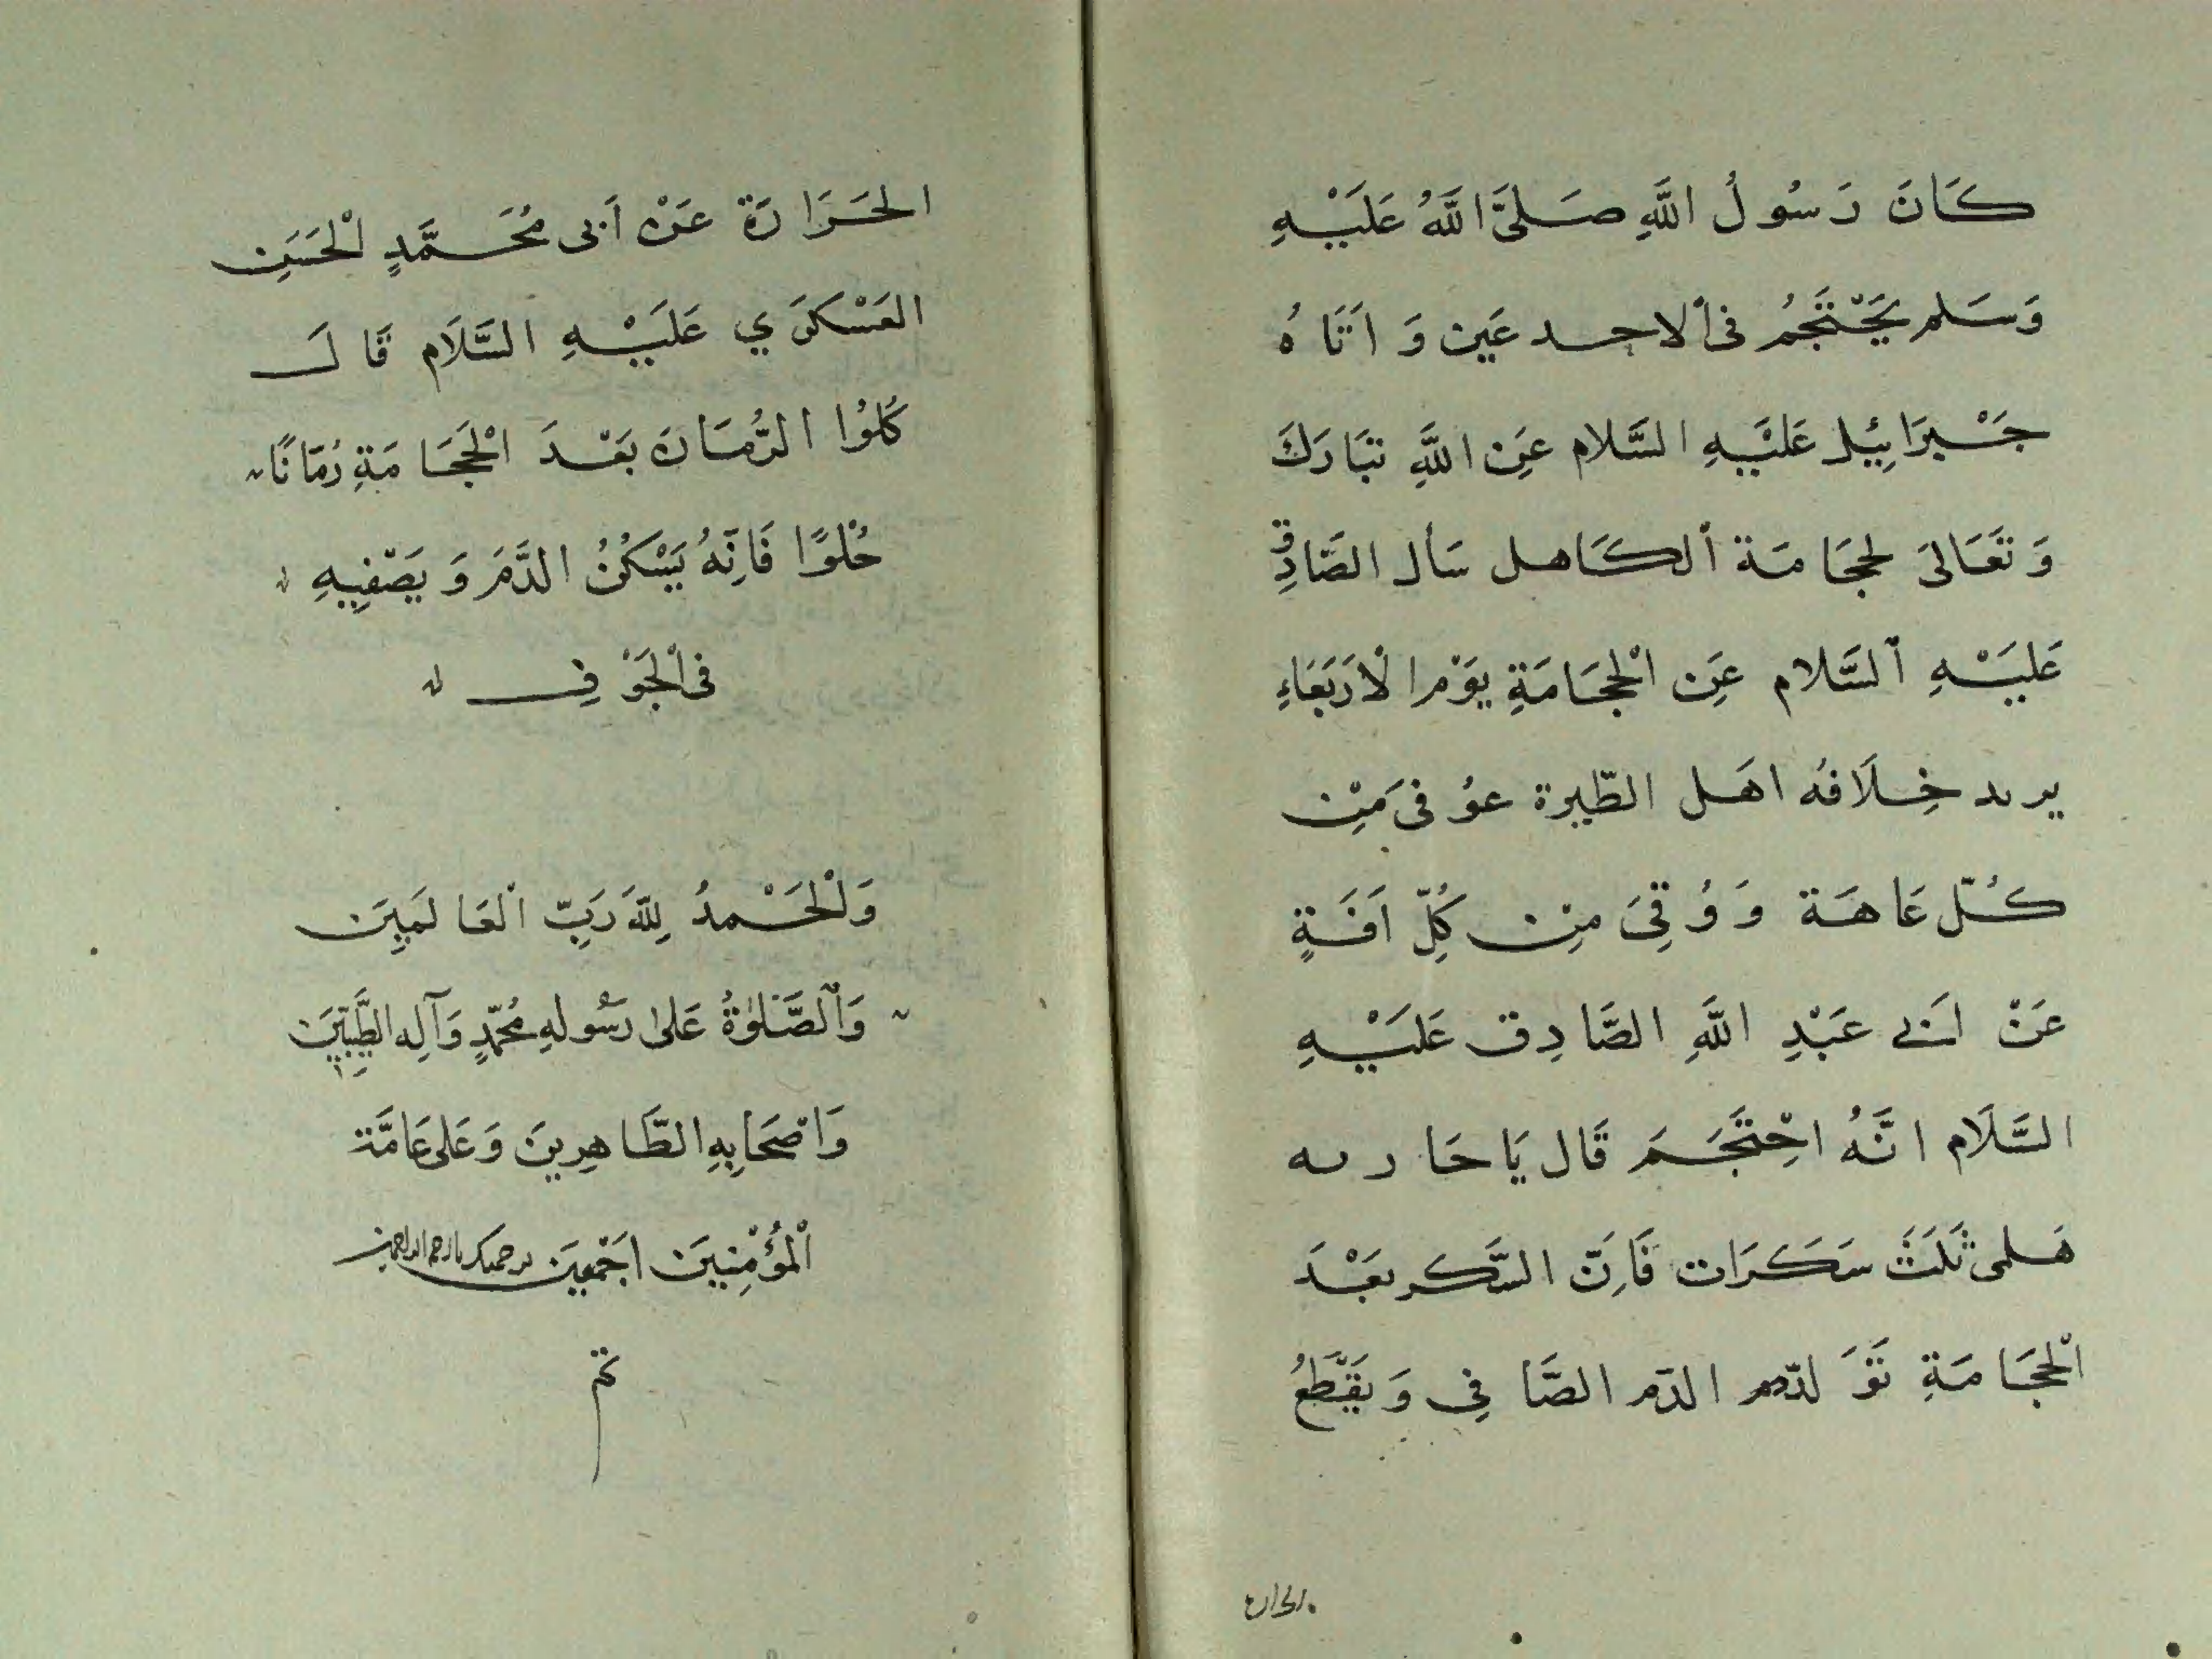 كَانَ رَسُولُ اللَّهِ صَلَّىَ اللَّهُ عَلَيْهِ
وَسَلم يَحْتَجِمُ فى ألاحدعَين وَ اَتَاهُ
جَبْرَائِيل عَلَيْهِ السَّلام عَنِ اللَّهِ تَبَارَكَ
وَ تَعَالىَ لحجَامَة ألكَاهل سَأل الصَّادِق
عَليَْهِ ألسَّلام عَنِ الْحِجَامَةِ يَوْم الْأَرْبَعَاءِ
يريد خِلَافُه اهَل الطّيرة عوُفىَ مِن
كُلّ عَاهَة وَ وُقِىَ مِن كُلِّ اَفَةٍ
عَنْ اَبى عَبْدِ اللَّهِ الصَّادِق عَلَيْهِ
السَّلَام انَّهُ احْتَجَمَ قَال يَا حَاريه
هَلمى ثَلَثَ سَكَرَات فَاِنّ السَّكر بَعْدَ
الْحجَامَةِ تَوَلدّ الدّم الصَّافِى وَ يَقَّطَعُ
الحرارة
الحَرَارَة عَنْ اَبى مُحَمَّدٍ الْحَسَنِ
العَسْكَرَي عَلَيْهِ السَّلَام قَالَ
كُلوُا الرُّمَّانَ بَعْدَ الْحَجَامَةِ رُمّانًا
حُلْوًا فَاِنَّهُ يَسْكُنُ الدَّمَ وَ يَصْفِيهِ
فى الْجَوْفِ
وَلْحَمْدُ لِلَّهَ رَبِّ الْعَالَمِينَ
وَالصَّلوٰةُ عَلىٰ رَسُولهِ مُحَمَّدٍ وَآلِهِ الطَّيِّبِينَ
وَاصْحَابِهِ الطَّاهِرِينَ وَعَلى عَامَّة
الْمُؤْمِنِينَ اَجْمَعِينَ برحمتك يا ارحم الراحمين
تم